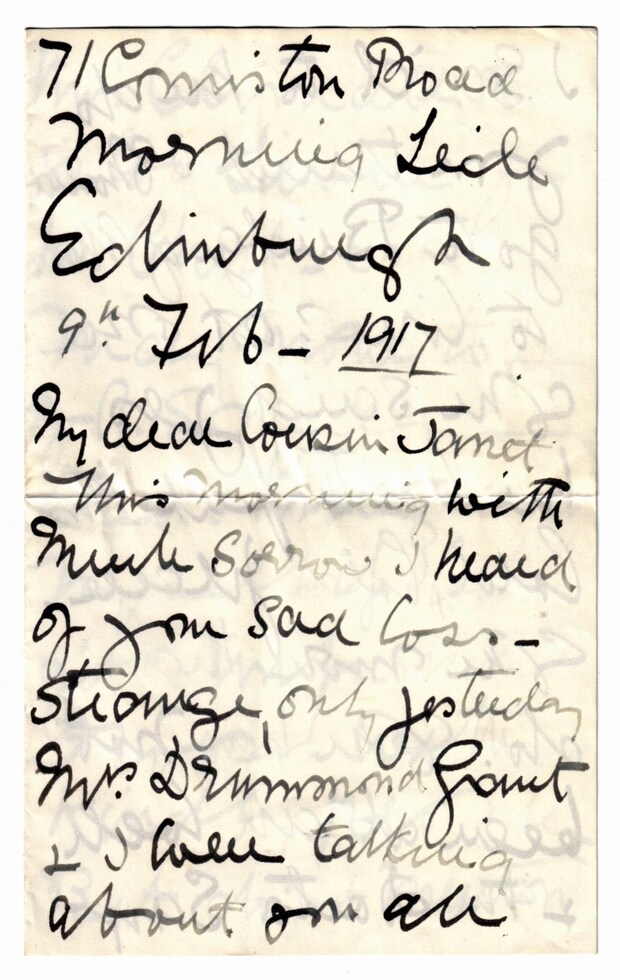 71 Comiston Road
Morning Side
Edinburgh
9th. Feb - 1917
My dear Cousin Janet
This morning with
Much Sorrow I heard
of your Sad loss -
Strange, only yesterday
Mrs Drummond Grant
& I were talking
about you all